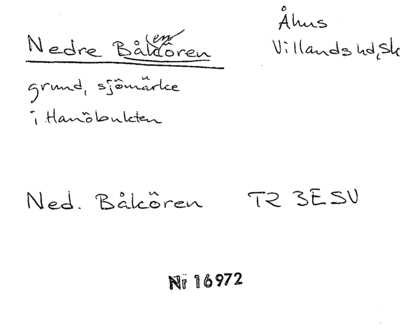 Nedre Båkören
Åhus
Villands hd, Sk
grund, sjömärke
i Hanöbukten
Ned. Båkören TR 3ESV
Nr 16972